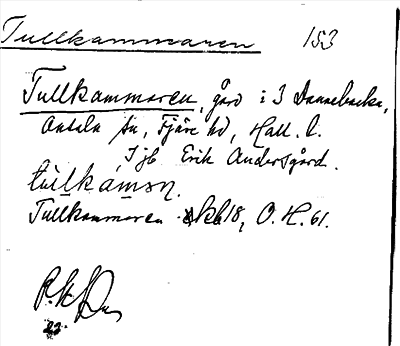 Tullkammaren 153
Tullkammaren, gård i 3 Dannebacka,
Onsala sn, Fjäre hd, Hall. l.
I jb Erik Andersgård.
Tullkammaren kb 18, O. H. 61.
22